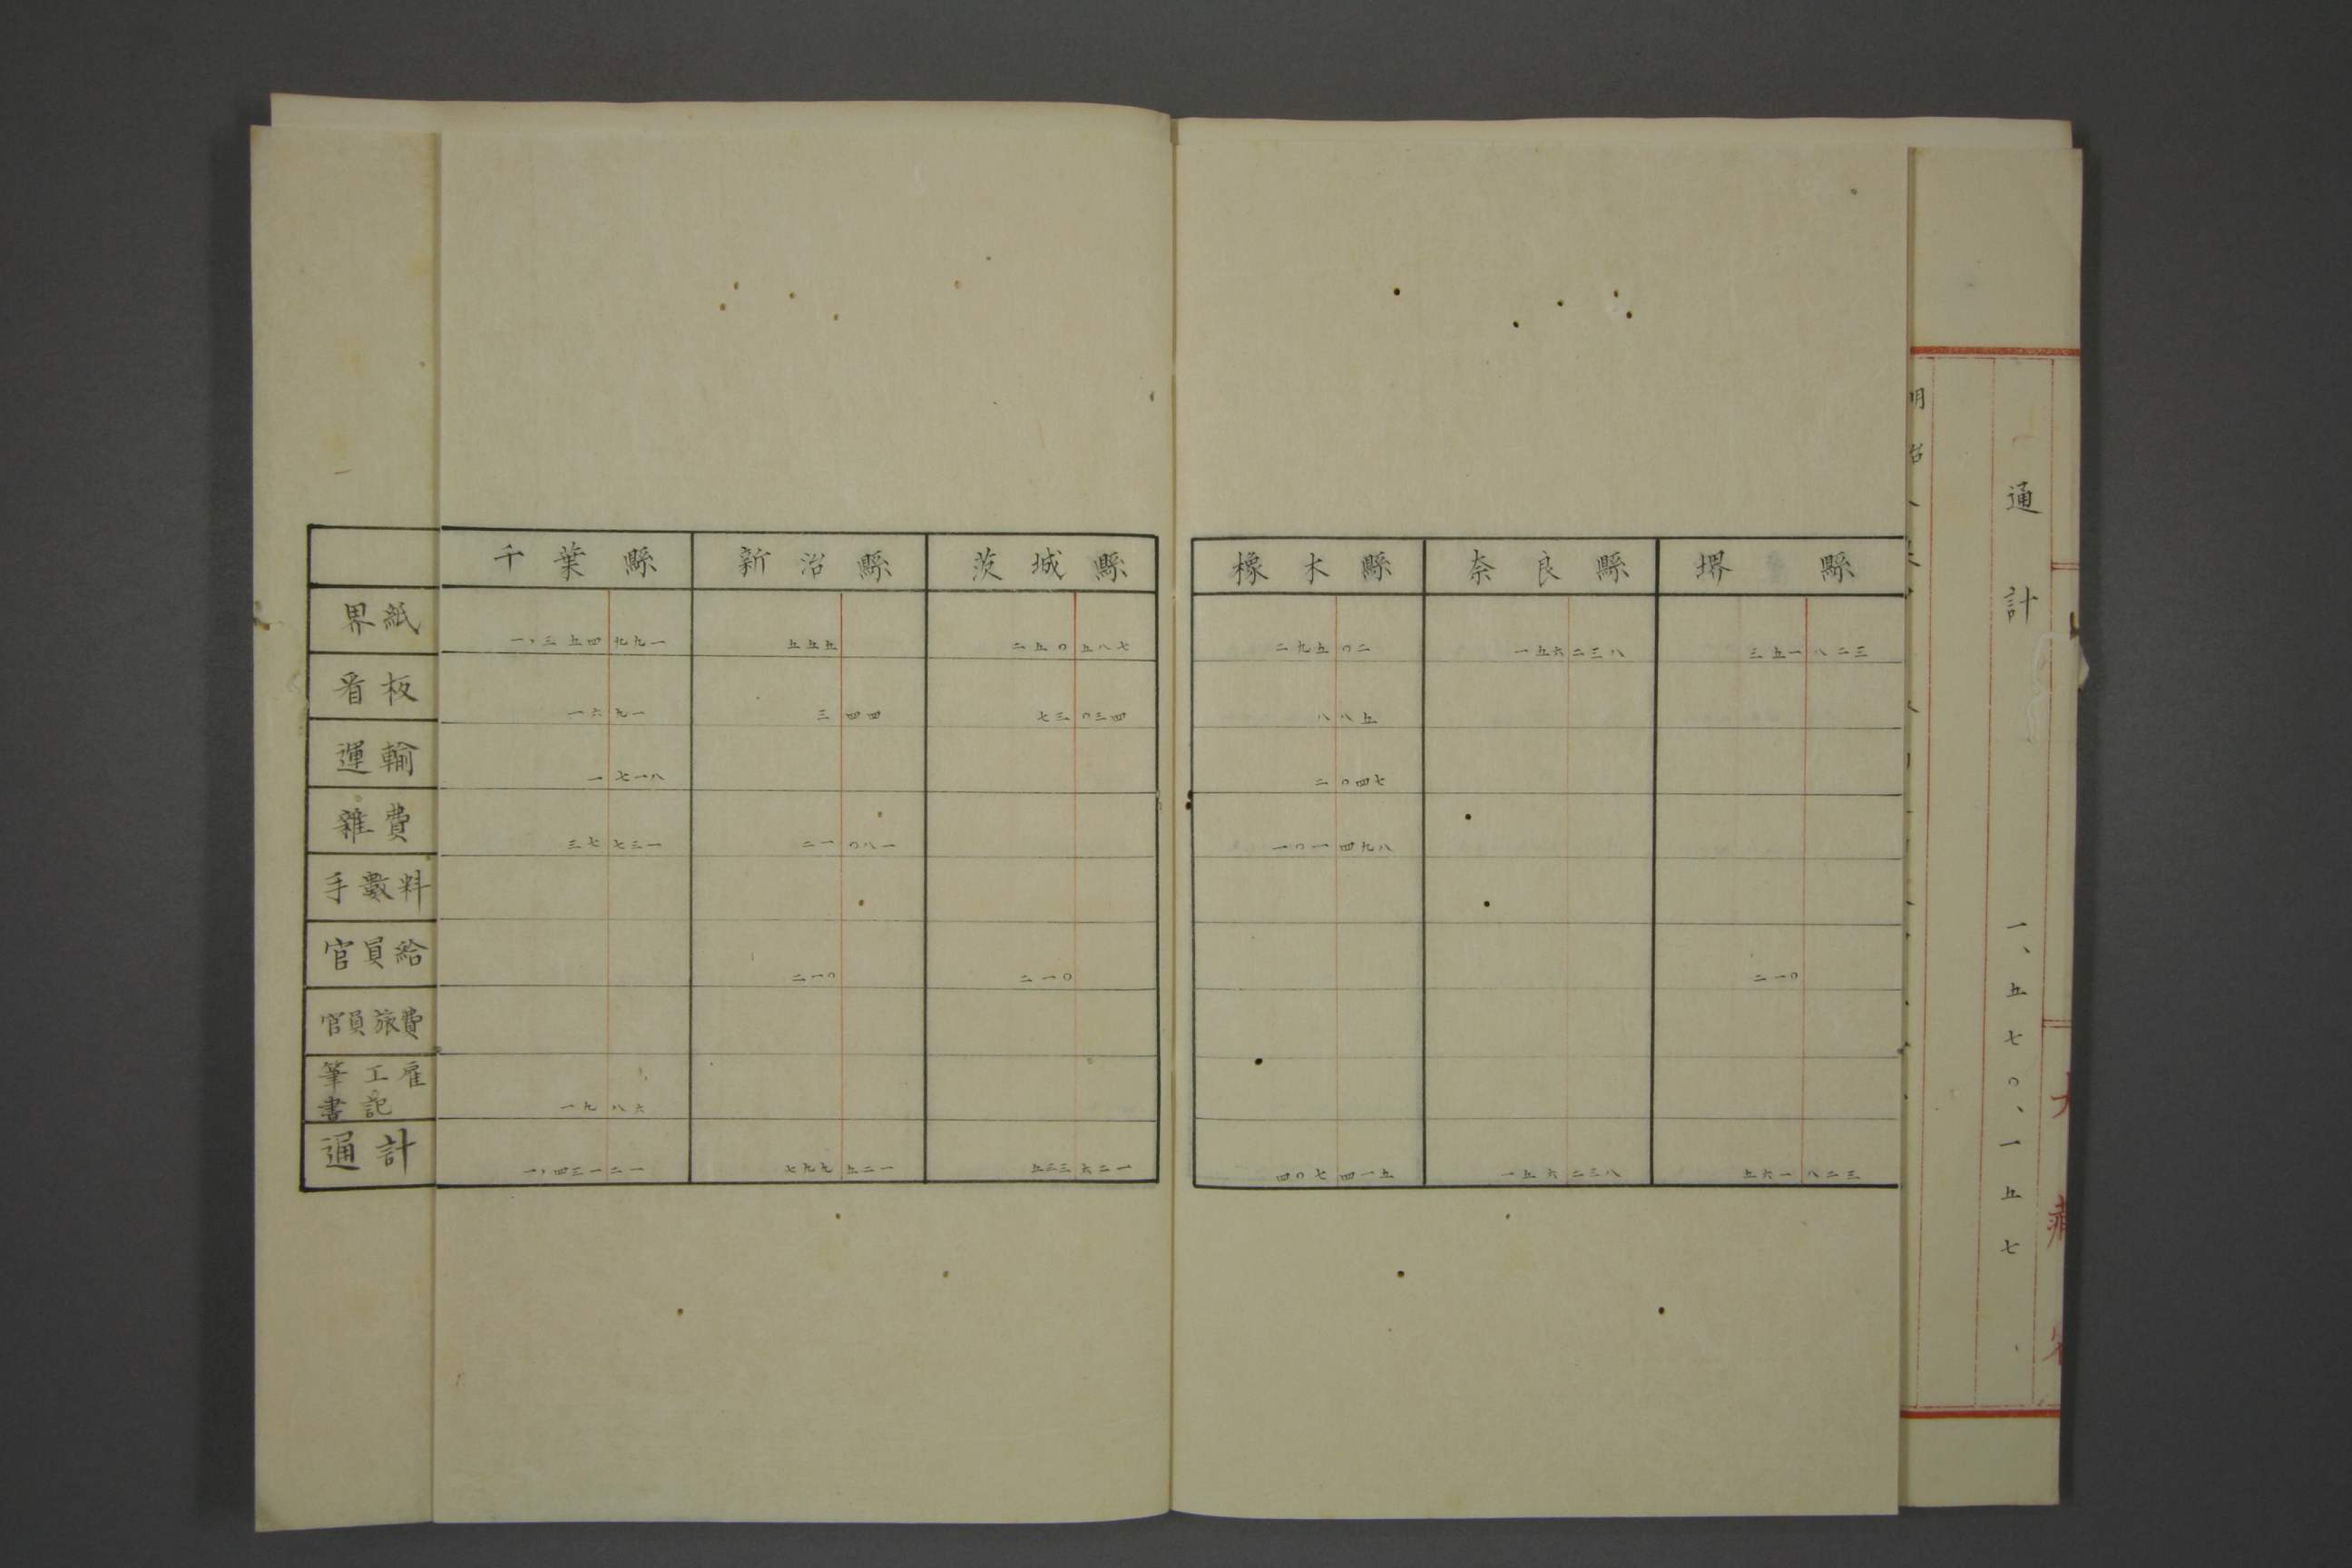 通計　一、五七〇、一五七
千葉縣　新治縣　茨城縣　橡木縣　奈良縣　堺縣
界紙　一、三五四九九一　五五五　二五〇五八七　二九五〇二　一五六二三八　三五一八二三
看板　一六九一　三四四　七三〇三四　八八五
運輸　一七一八　二〇四七
雜費　三七七三一　二一〇八一　一〇一四九八
手數料
官員給　二一〇　二一〇　二一〇
官員旅費
筆工雇
書記　一九八六
通計　一、四三一二一　七九九五二一　五三三六二一　四〇七四一五　一五六二三八　五六一八二三